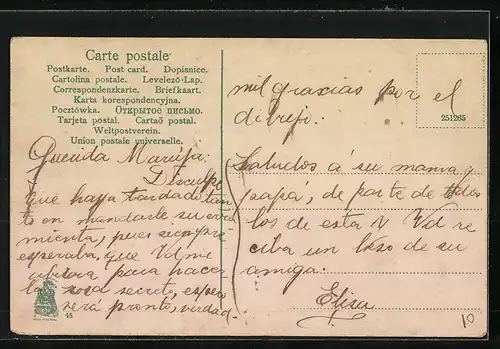 Carte postale
Postkarte. Post card. Dopisnice.
Cartolina postale. Levelező-Lap.
Correspondenzkarte. Briefkaart.
Karta korespondencyjna.
Pocztówka. ОТКРЫТОЕ ПИСЬМО.
Tarjeta postal. Cartaõ postal.
Weltpostverein.
Union postale universelle.
Querida Maruja:
Disculpe
que haya tardado tan
to en mandarle su
mienta, pues siempre
esperaba, que Vd me
para hacer
secreto,
será pronto, verdad.
45
mil gracias por el
dibujo.
251265
Saludos á su mama y
papá, de parte de todos
los de esta y Vd re
ciba un beso de su
amiga:
Elisa
10